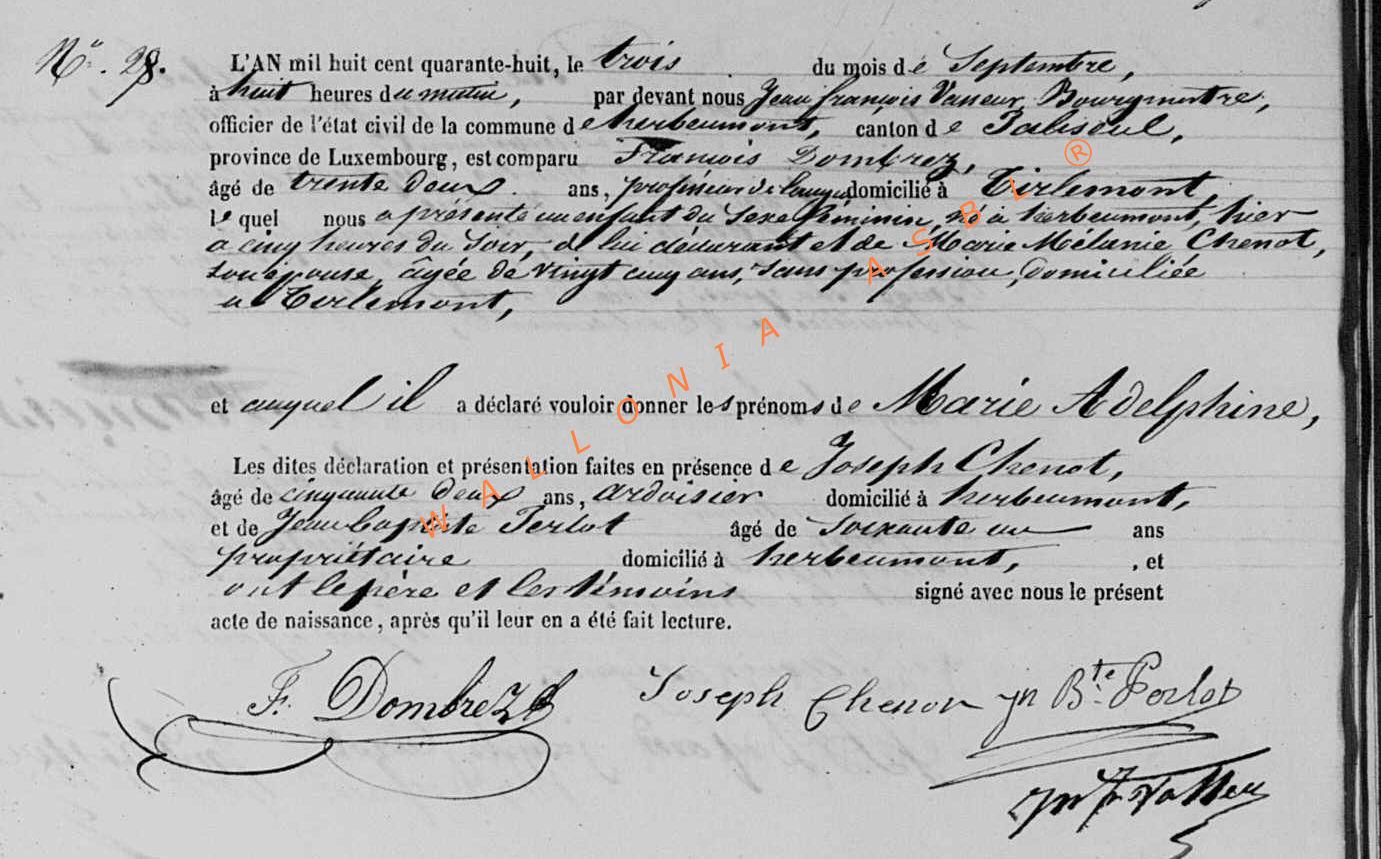 N° 28.
L'AN mil huit cent quarante-huit, le trois du mois de Septembre,
à huit heures du matin, par devant nous Jean françois Vasseur, Bourgmestre,
officier de l'état civil de la commune de herbeumont, canton de Paliseul,
province de Luxembourg, est comparu François Dombrez,
âgé de trente deux ans, professeur de langue domicilié à Tirlemont,
lequel nous a présenté un enfant du sexe féminin, né à herbeumont, hier
a cinq heures du soir, de lui déclarant et de Marie Mélanie Chenot,
son épouse, âgée de vingt cinq ans, sans profession, domiciliée
a Tirlemont,
et auquel il a déclaré vouloir donner les prénoms de Marie Adelphine,
Les dites déclaration et présentation faites en présence de Joseph Chenot,
âgé de cinquante deux ans, ardoisier domicilié à herbeumont,
et de Jean baptiste Perlot âgé de soixante un ans
propriétaire domicilié à herbeumont, , et
ont le père et les témoins signé avec nous le présent
acte de naissance, après qu'il leur en a été fait lecture.
F. Dombrez Joseph Chenot Jn Bte. Perlot
WALLONIA ASBL ®